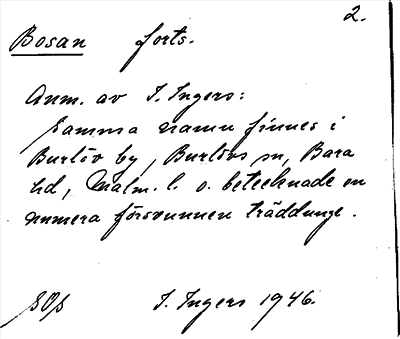 2.
Bosan forts.
Anm. av I. Ingers:
samma namn finnes i
Burlöv by, Burlövs sn, Bara
hd, Malm. l. o. betecknade en
numera försvunnen träddunge.
I. Ingers 1946.